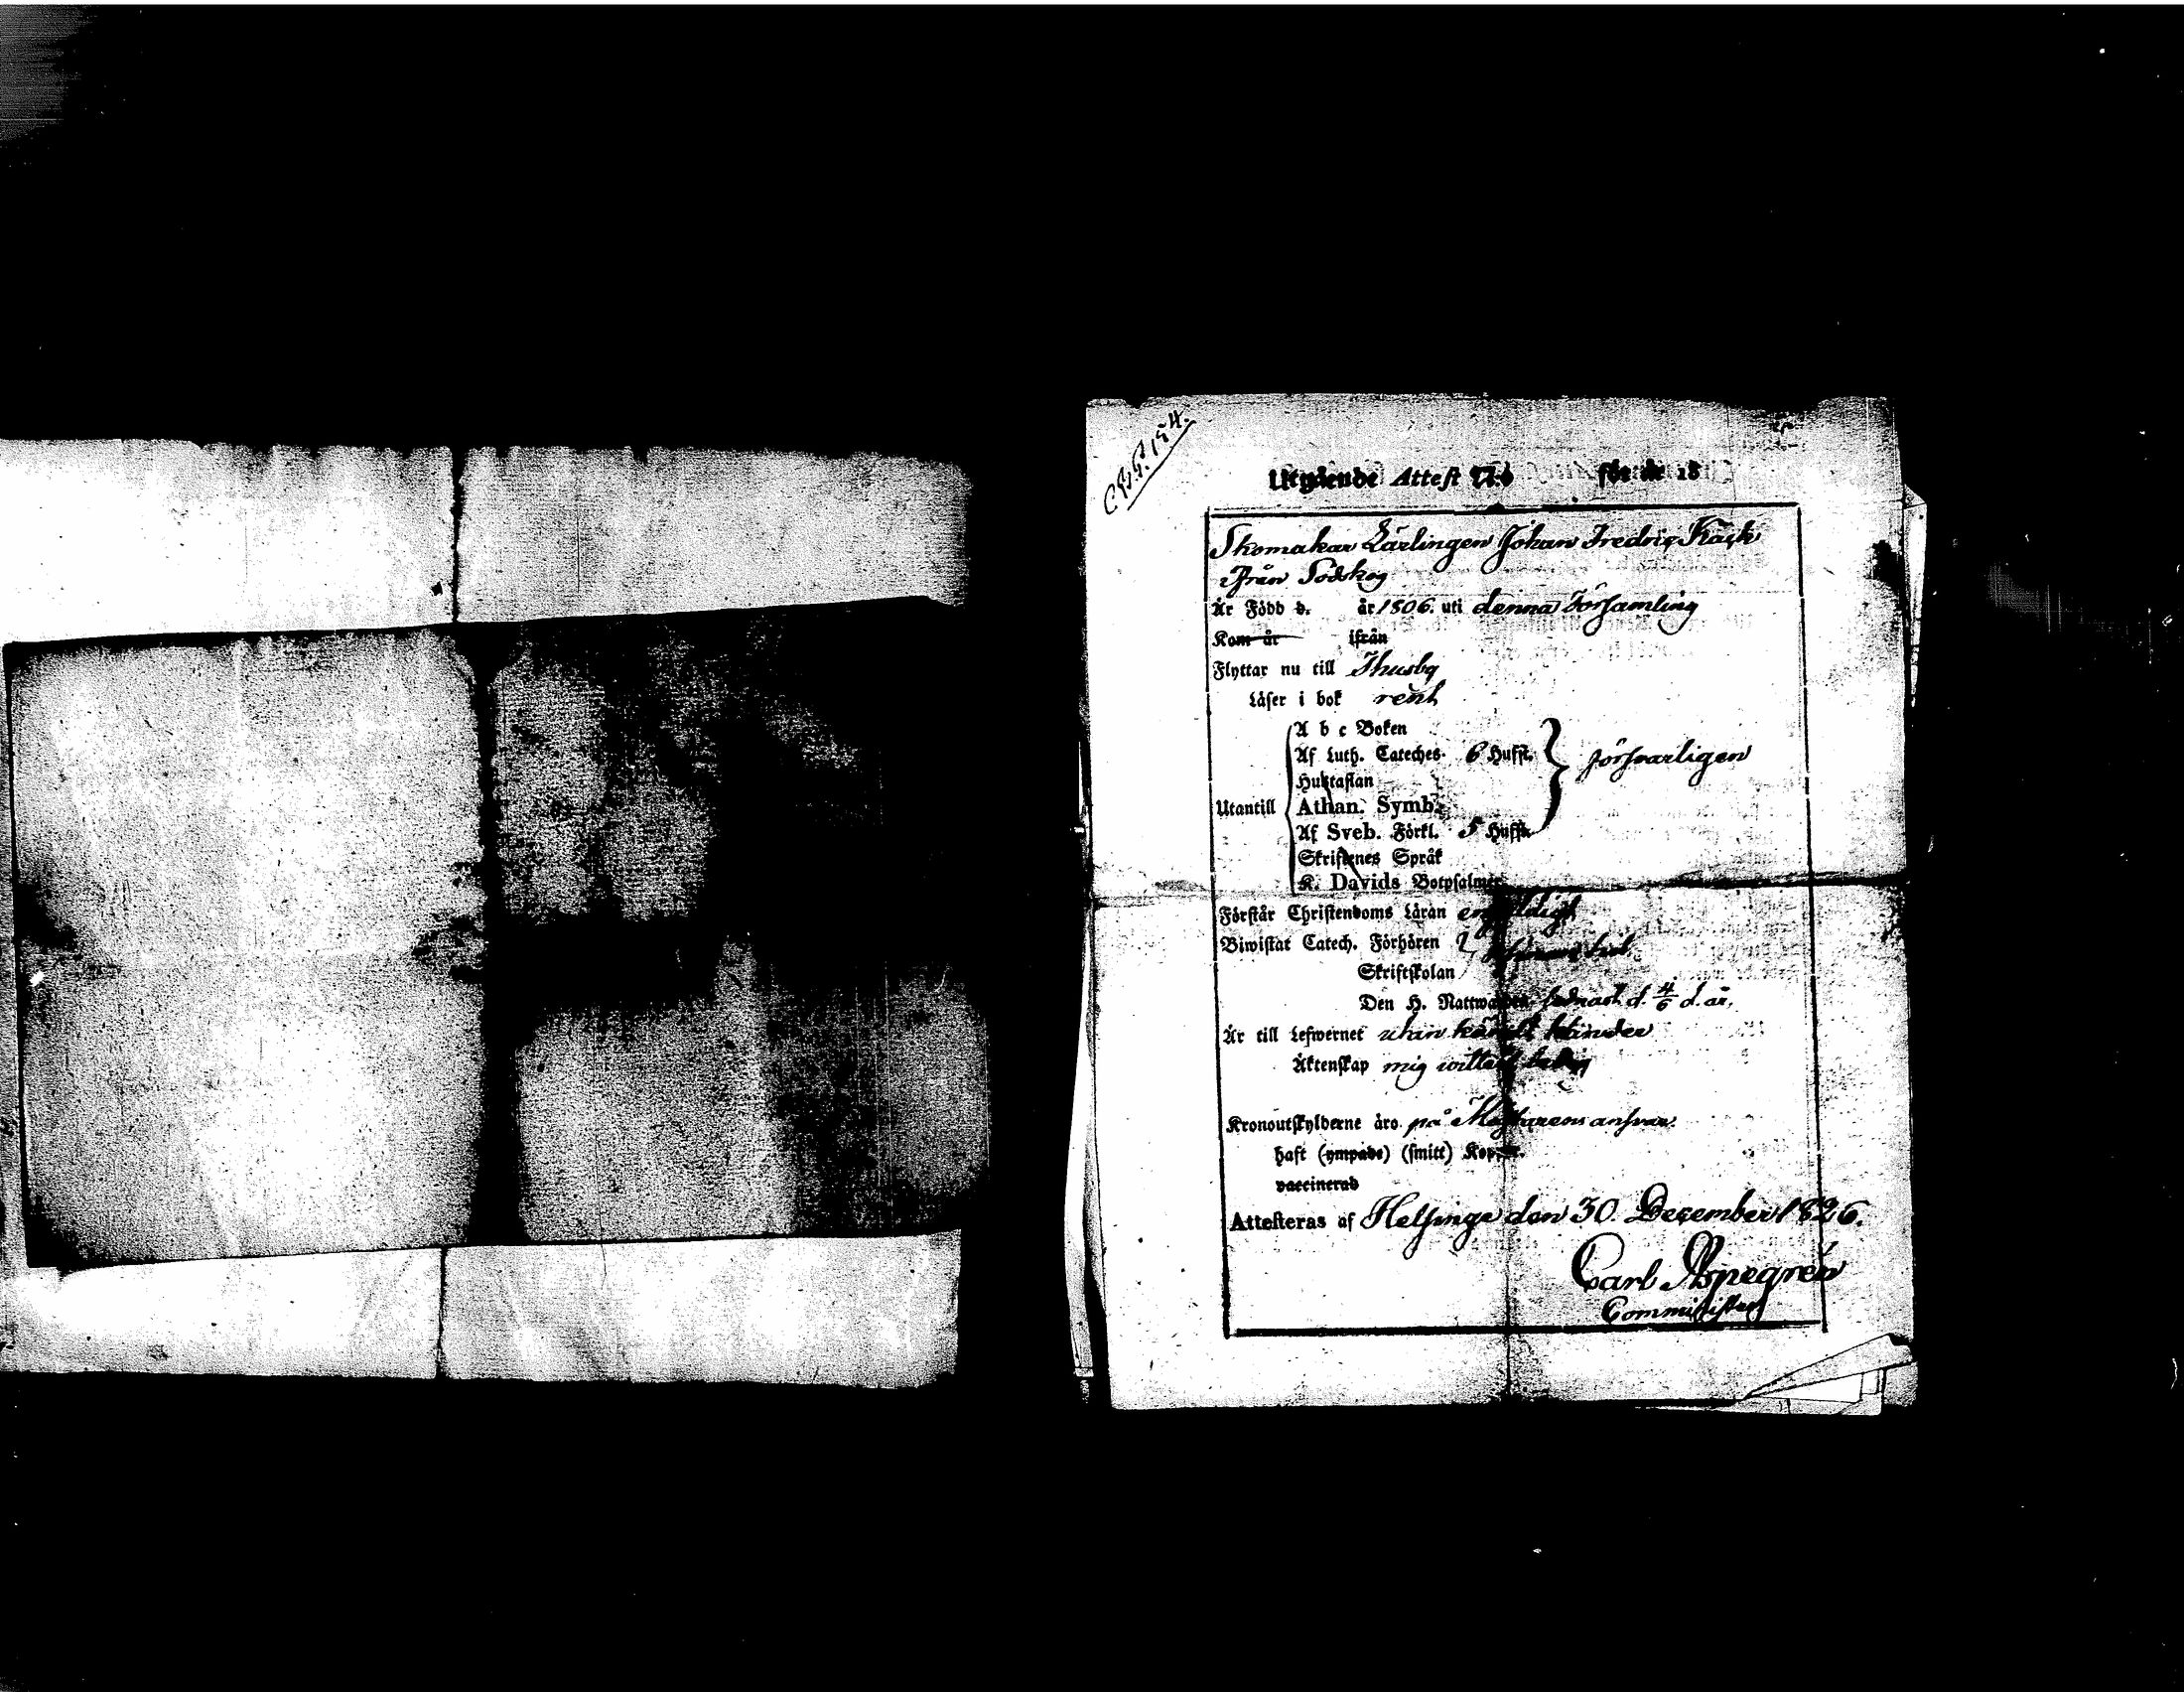 Utgående Attest N:o för år 18
Skomakar Lärlingen Johan Fredric Käck
ifrån Todskog
Är Född d. år 1806. uti denna Församling
Kom år ifrån
Flyttar nu till Thusby
Läser i bok rent
A b c Boken
Af Luth. Cateches. 6 Hufst.
försvarligen
Hustaflan
Utantill Athan. Symb.
Af Sveb. Förkl. 5 Hufst.
Skriftenes Språk
K. Davids Botpsalmer
Förstår Christendoms Läran enfaldigt
Biwistat Catech. Förhören
Skriftskolan
Den H. Nattwarden d. 4/6 d. år.
Är till Lefwernet utan kändt hinder
Äktenskap mig witterl. ledig
Kronoutskylderne äro på Mästarens ansvar.
haft (ympade) (smitt) Koppor.
vaccinerad
Attesteras af Helsinge den 30. December 1826.
Carl Aspegrén
Comminister